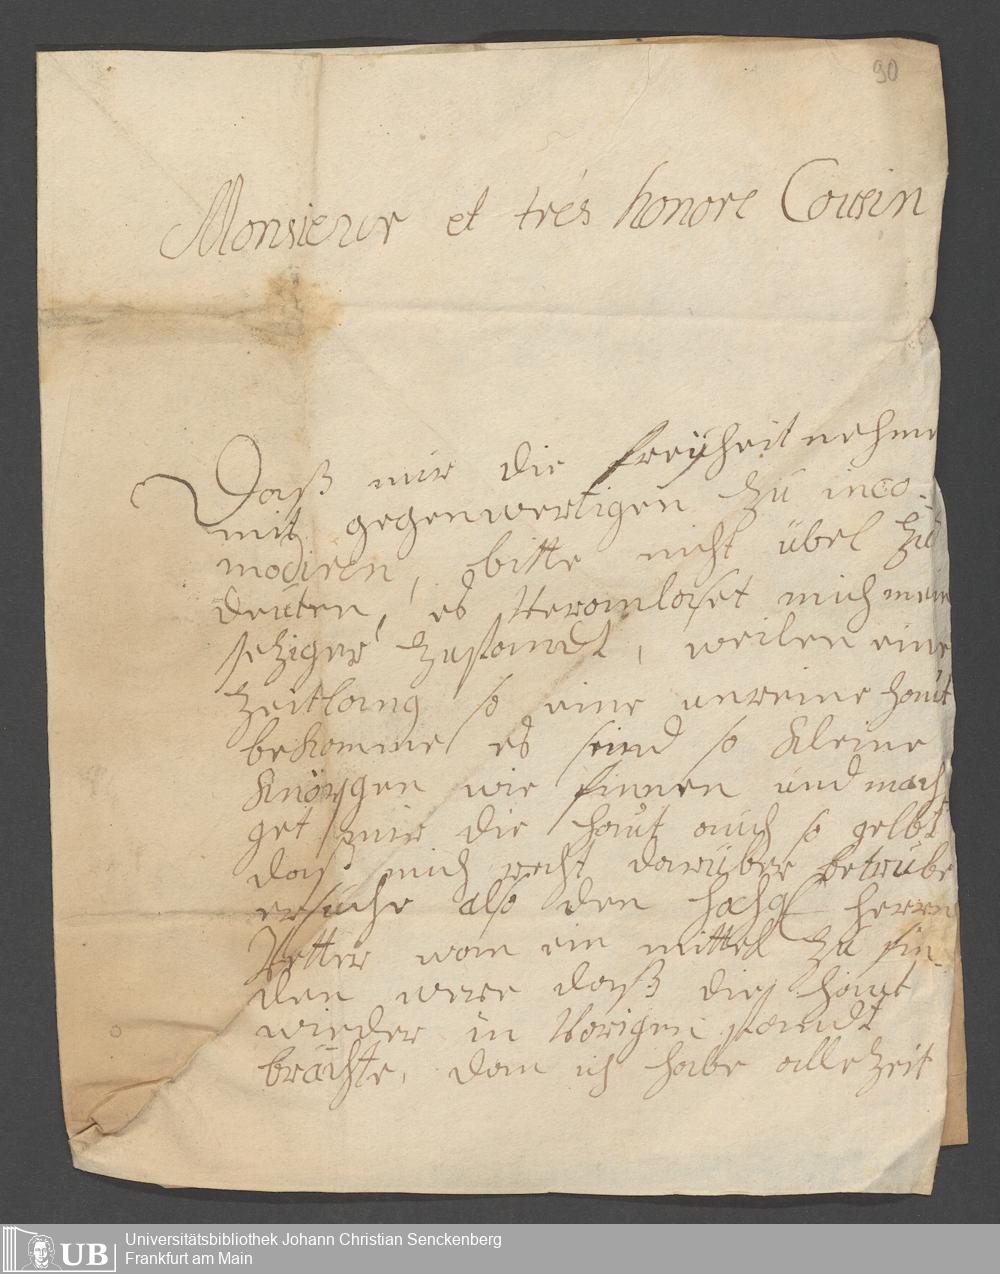 90
Monsieur et trés honore Cousin
Daß mir die freÿheit nehme
mit gegenwertigen zu inco-
modiren, bitte nicht übel zu
deuten, es Veranlaset mich mein
jetziger zustandt, weilen eine
zeitlang so eine unreine haut
bekomme es seind so kleine
Knöpgen wie finnen und mach
get mir die haut auch so gelbt
daß mich recht darüber betrübe
ersuche also den hochg herrn
Vetter wan ein mittel zu fin-
den were daß die haut
wieder in Vorigen standt
brächte, dan ich habe alle zeit
UB
Universitätsbibliothek Johann Christian Senckenberg
Frankfurt am Main